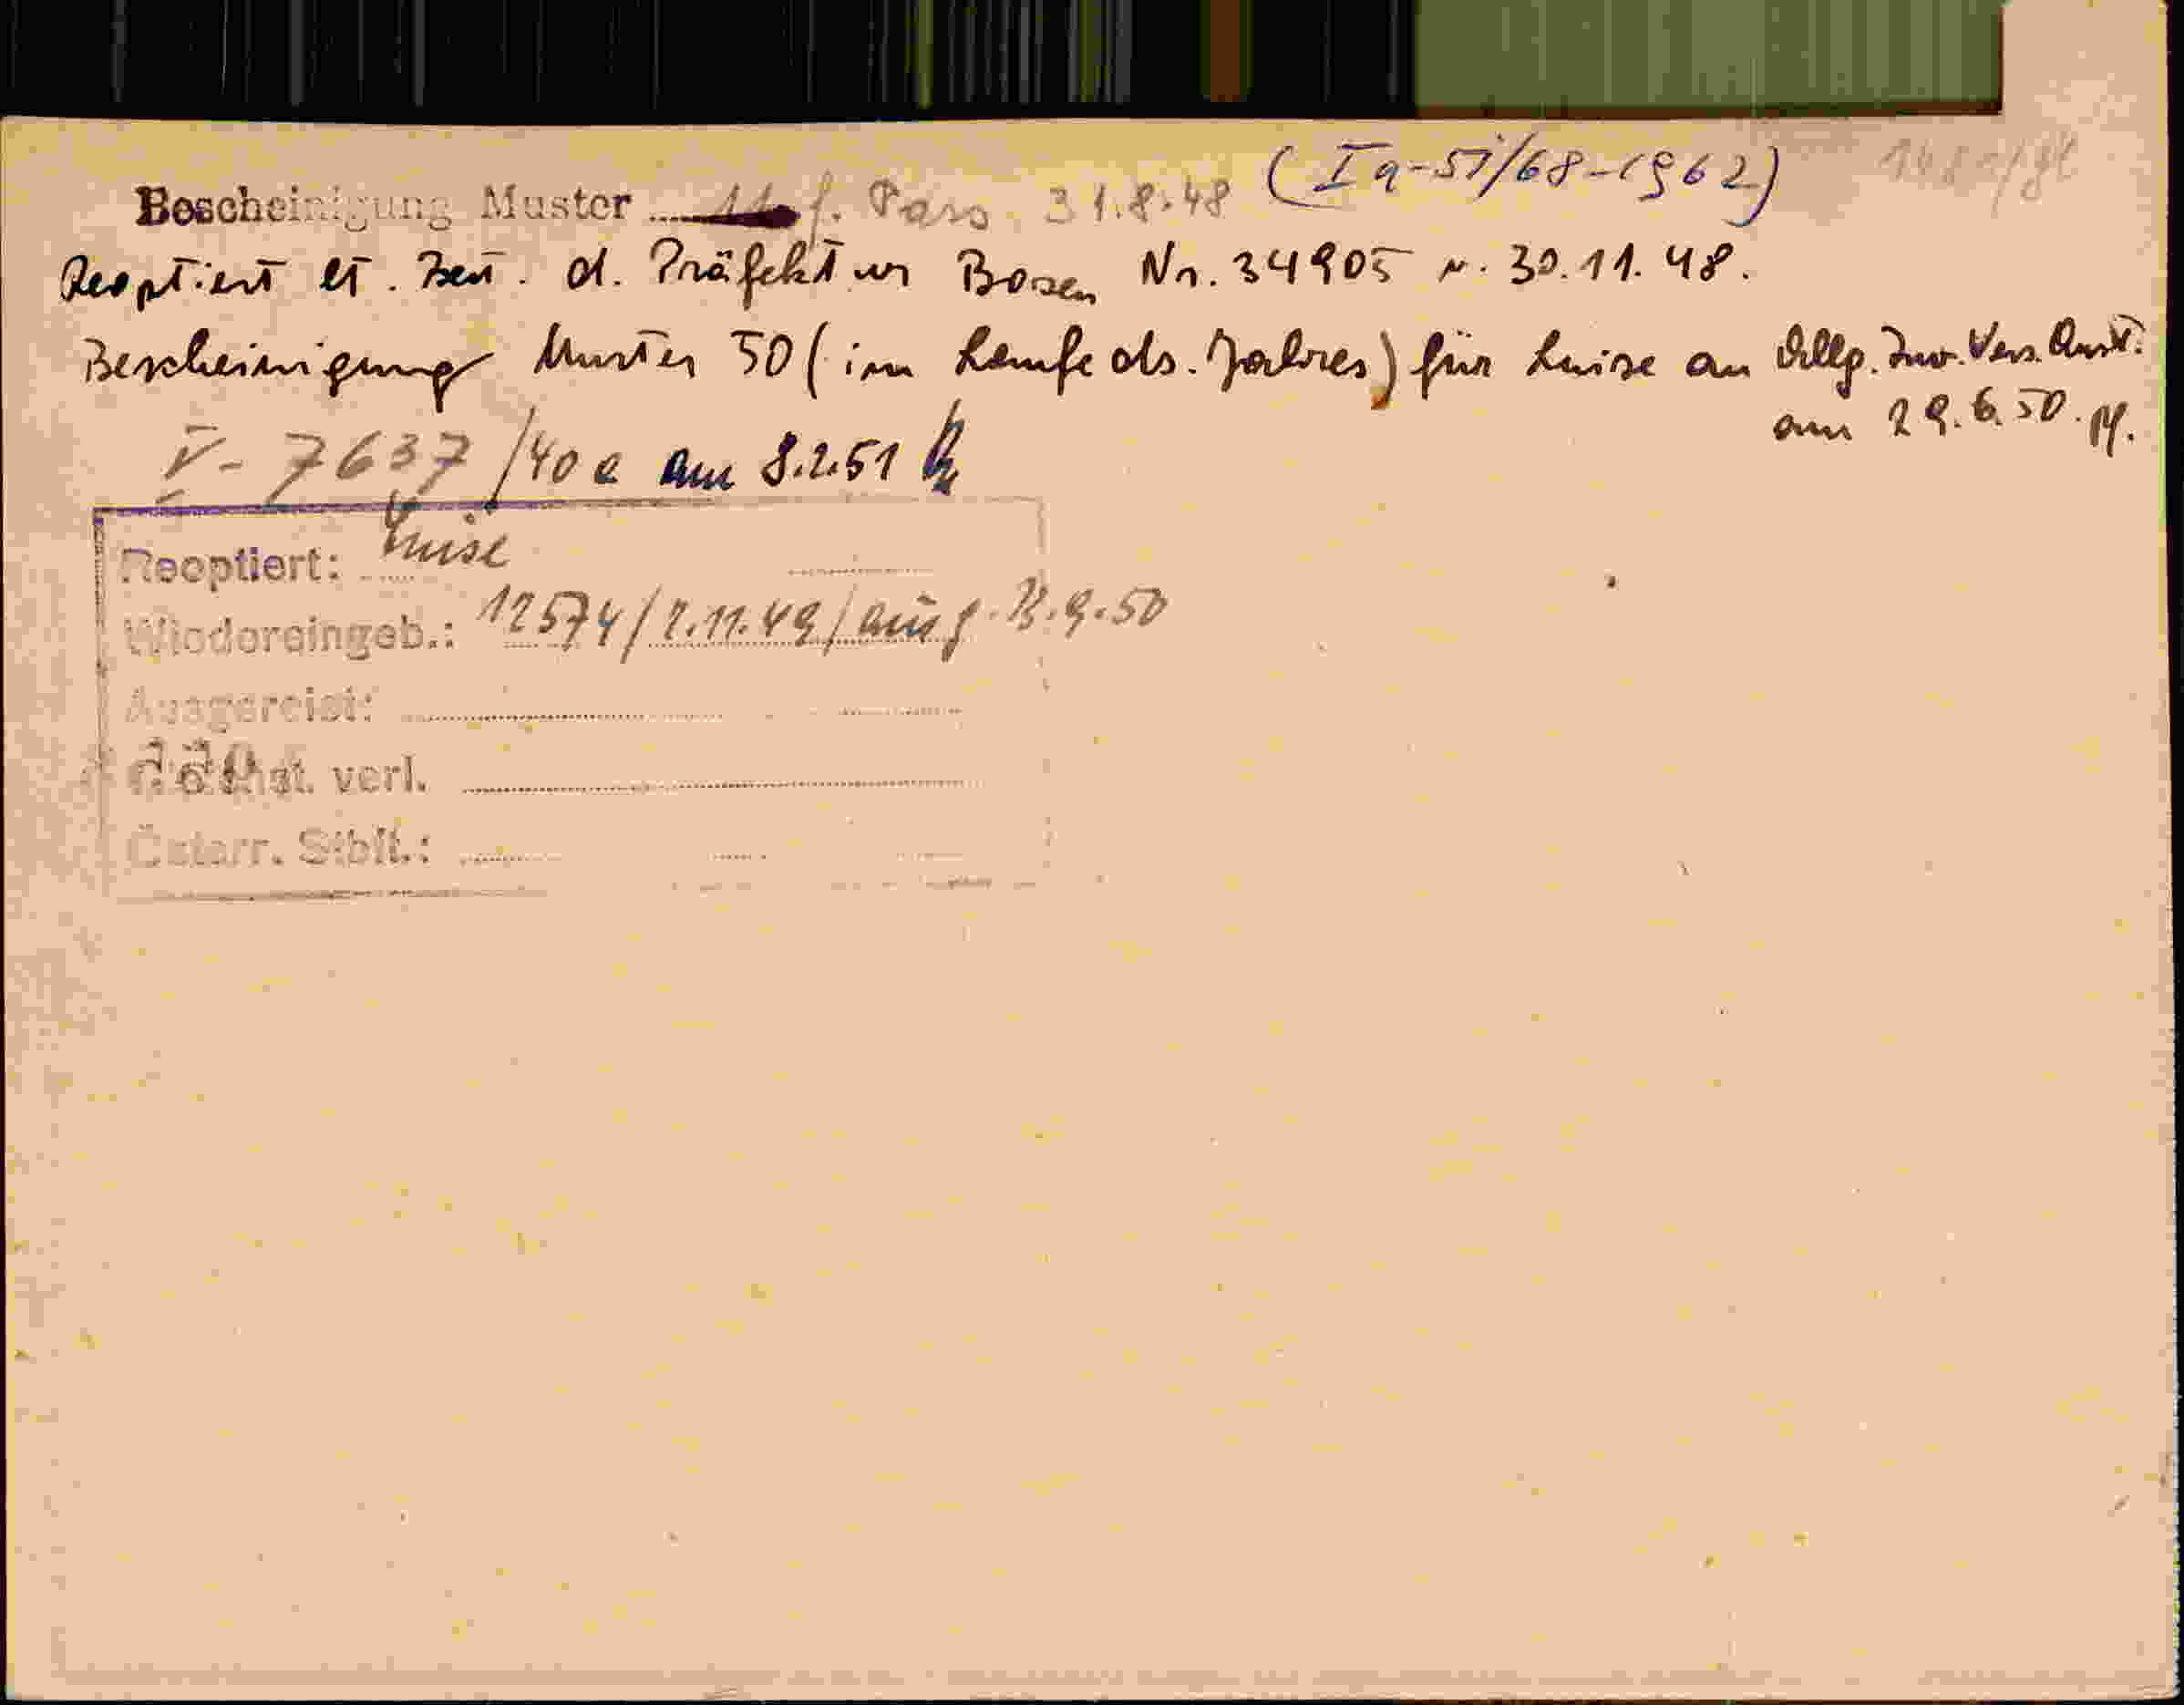 Bescheinigung Muster 11 f. Pass 31.8.48 (Ia-57/68-1962)
Reoptiert lt. Best. d. Präfektur Bozen Nr. 34905 v. 30.11.48.
Bescheinigung Muster 50 (im Laufe ds. Jahres) für Luise an Allg. Inv. Vers. Anst.
am 29.6.50.
V- 7637/40 e am 8.2.51
Reoptiert: Luise
Wiedereingeb.: 12574/2.11.49/ausg. 13.9.50
Ausgereist:
verl.
Österr. Stbft.: